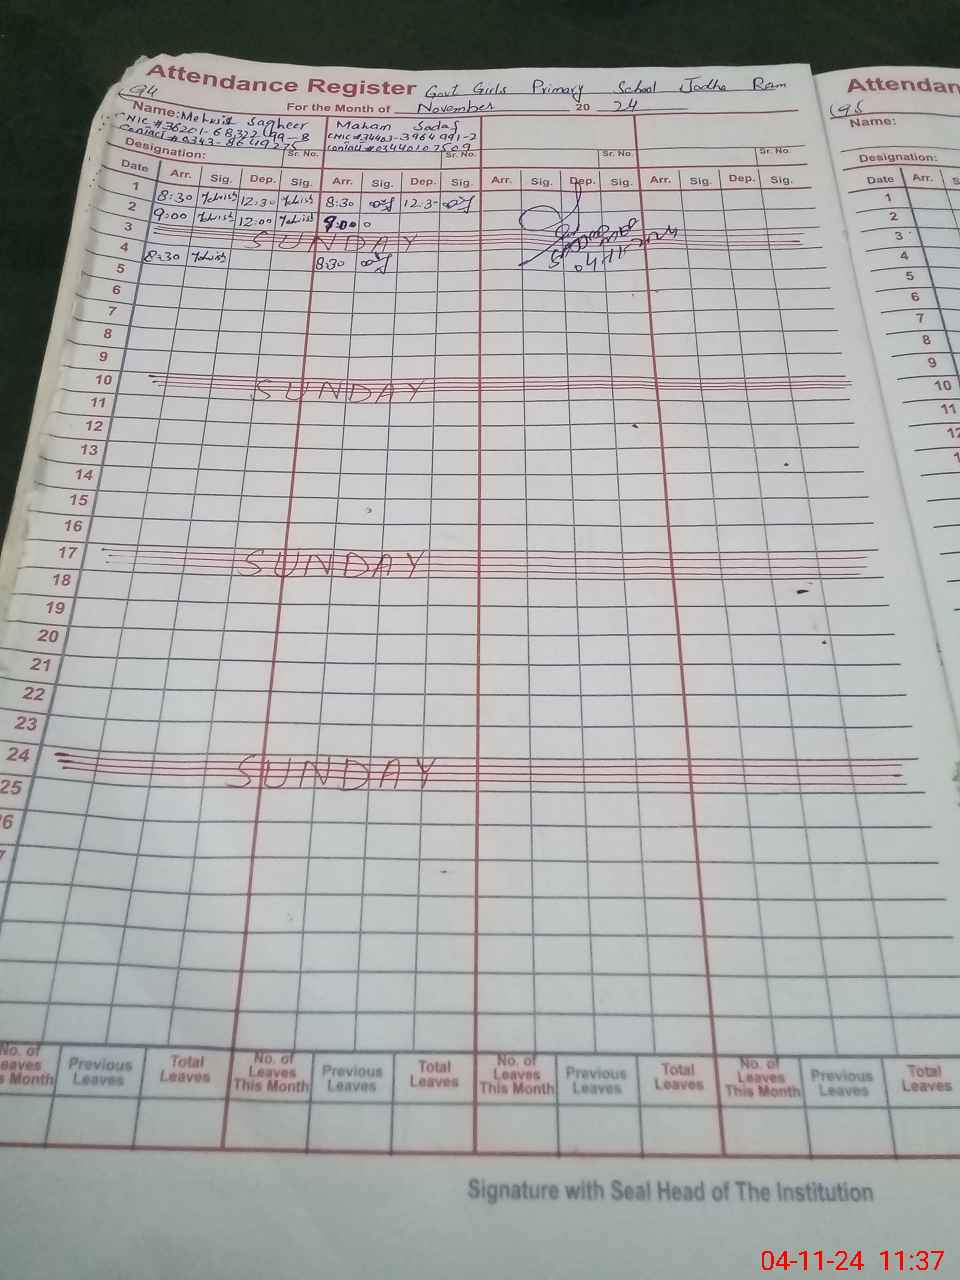 Attendance Register Govt Girls Primary School Jodha Ram
94
For the Month of November 20 24
Name: Mehwish Sagheer
CNIC # 36201-6832299-8
Contact # 0343-8649275
Maham Sadaf
CNIC # 34403-3964991-2
Contact # 03440107509
Designation: Sr. No. Sr. No. Sr. No. Sr. No.
Date Arr. Sig. Dep. Sig. Arr. Sig. Dep. Sig. Arr. Sig. Dep. Sig. Arr. Sig. Dep. Sig.
1 8:30 12:30 8:30 12:3
2 9:00 12:00 9:00
3 SUNDAY
4 8:30 8:30
04-11-2024
5
6
7
8
9
10 SUNDAY
11
12
13
14
15
16
17 SUNDAY
18
19
20
21
22
23
24 SUNDAY
25
6
7
No. of Previous Total No. of Previous Total No. of Previous Total No. of Previous Total
eaves Leaves Leaves Leaves Leaves Leaves Leaves Leaves Leaves Leaves Leaves Leaves
s Month This Month This Month This Month
Signature with Seal Head of The Institution
Attendan
95
Name:
Designation:
Date Arr. S
1
2
3
4
5
6
7
8
9
10
11
12
1
04-11-24 11:37